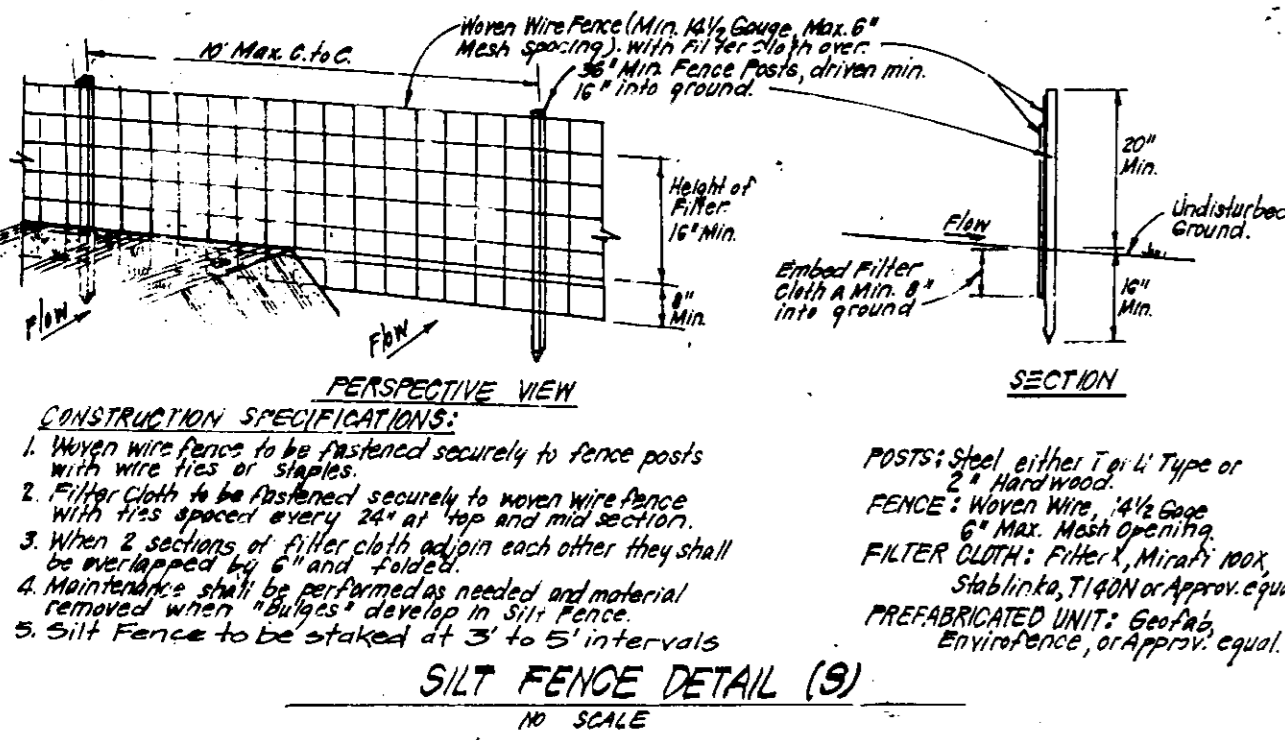 Woven Wire Fence (Min. 14½ Gauge, Max. 6"
Mesh spacing). with Filter Cloth over.
10' Max. C. to C.
36" Min. Fence Posts, driven min.
16" into ground.
Height of
Filter
16" Min.
8"
Min.
Flow
Flow
PERSPECTIVE VIEW
20"
Min.
Undisturbed
Ground.
Flow
Embed Filter
Cloth a Min. 8"
into ground
16"
Min.
SECTION
CONSTRUCTION SPECIFICATIONS:
1. Woven wire fence to be fastened securely to fence posts
with wire ties or staples.
2. Filter Cloth to be fastened securely to woven wire fence
with ties spaced every 24" at top and mid section.
3. When 2 sections of filter cloth adjoin each other they shall
be overlapped by 6" and folded.
4. Maintenance shall be performed as needed and material
removed when "Bulges" develop in Silt Fence.
5. Silt Fence to be staked at 3' to 5' intervals
POSTS: Steel either T or U Type or
2" Hardwood.
FENCE: Woven Wire, 14½ Gage
6" Max. Mesh Opening.
FILTER CLOTH: Filter X, Mirafi 100X,
Stablinka, T140N or Approv. equa
PREFABRICATED UNIT: Geofab,
Envirofence, or Approv. equal.
SILT FENCE DETAIL (S)
NO SCALE